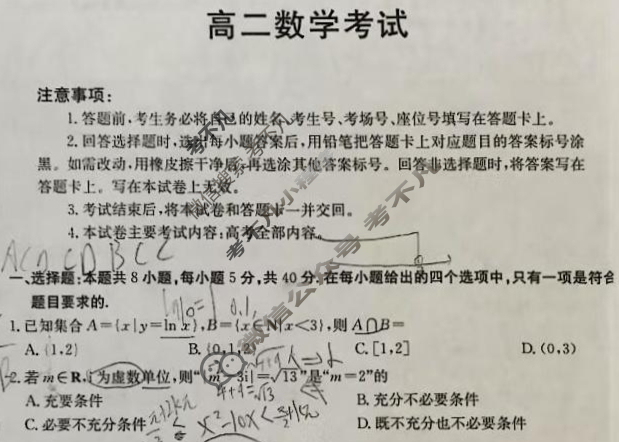 高二数学考试
注意事项:
1.答题前,考生务必将自己的姓名、考生号、考场号、座位号填写在答题卡上。
2.回答选择题时,选出每小题答案后,用铅笔把答题卡上对应题目的答案标号涂
黑。如需改动,用橡皮擦干净后,再选涂其他答案标号。回答非选择题时,将答案写在
答题卡上。写在本试卷上无效。
3.考试结束后,将本试卷和答题卡一并交回。
4.本试卷主要考试内容:高考全部内容。
一、选择题:本题共8小题,每小题5分,共40分.在每小题给出的四个选项中,只有一项是符合
题目要求的.
1.已知集合A={x|y=ln x},B={x∈N|x<3},则A∩B=
A.{1,2} B.{0,1,2} C.[1,2] D.(0,3)
2.若m∈R,i为虚数单位,则“|m-3i|=√13”是“m=2”的
A.充要条件 B.充分不必要条件
C.必要不充分条件 D.既不充分也不必要条件